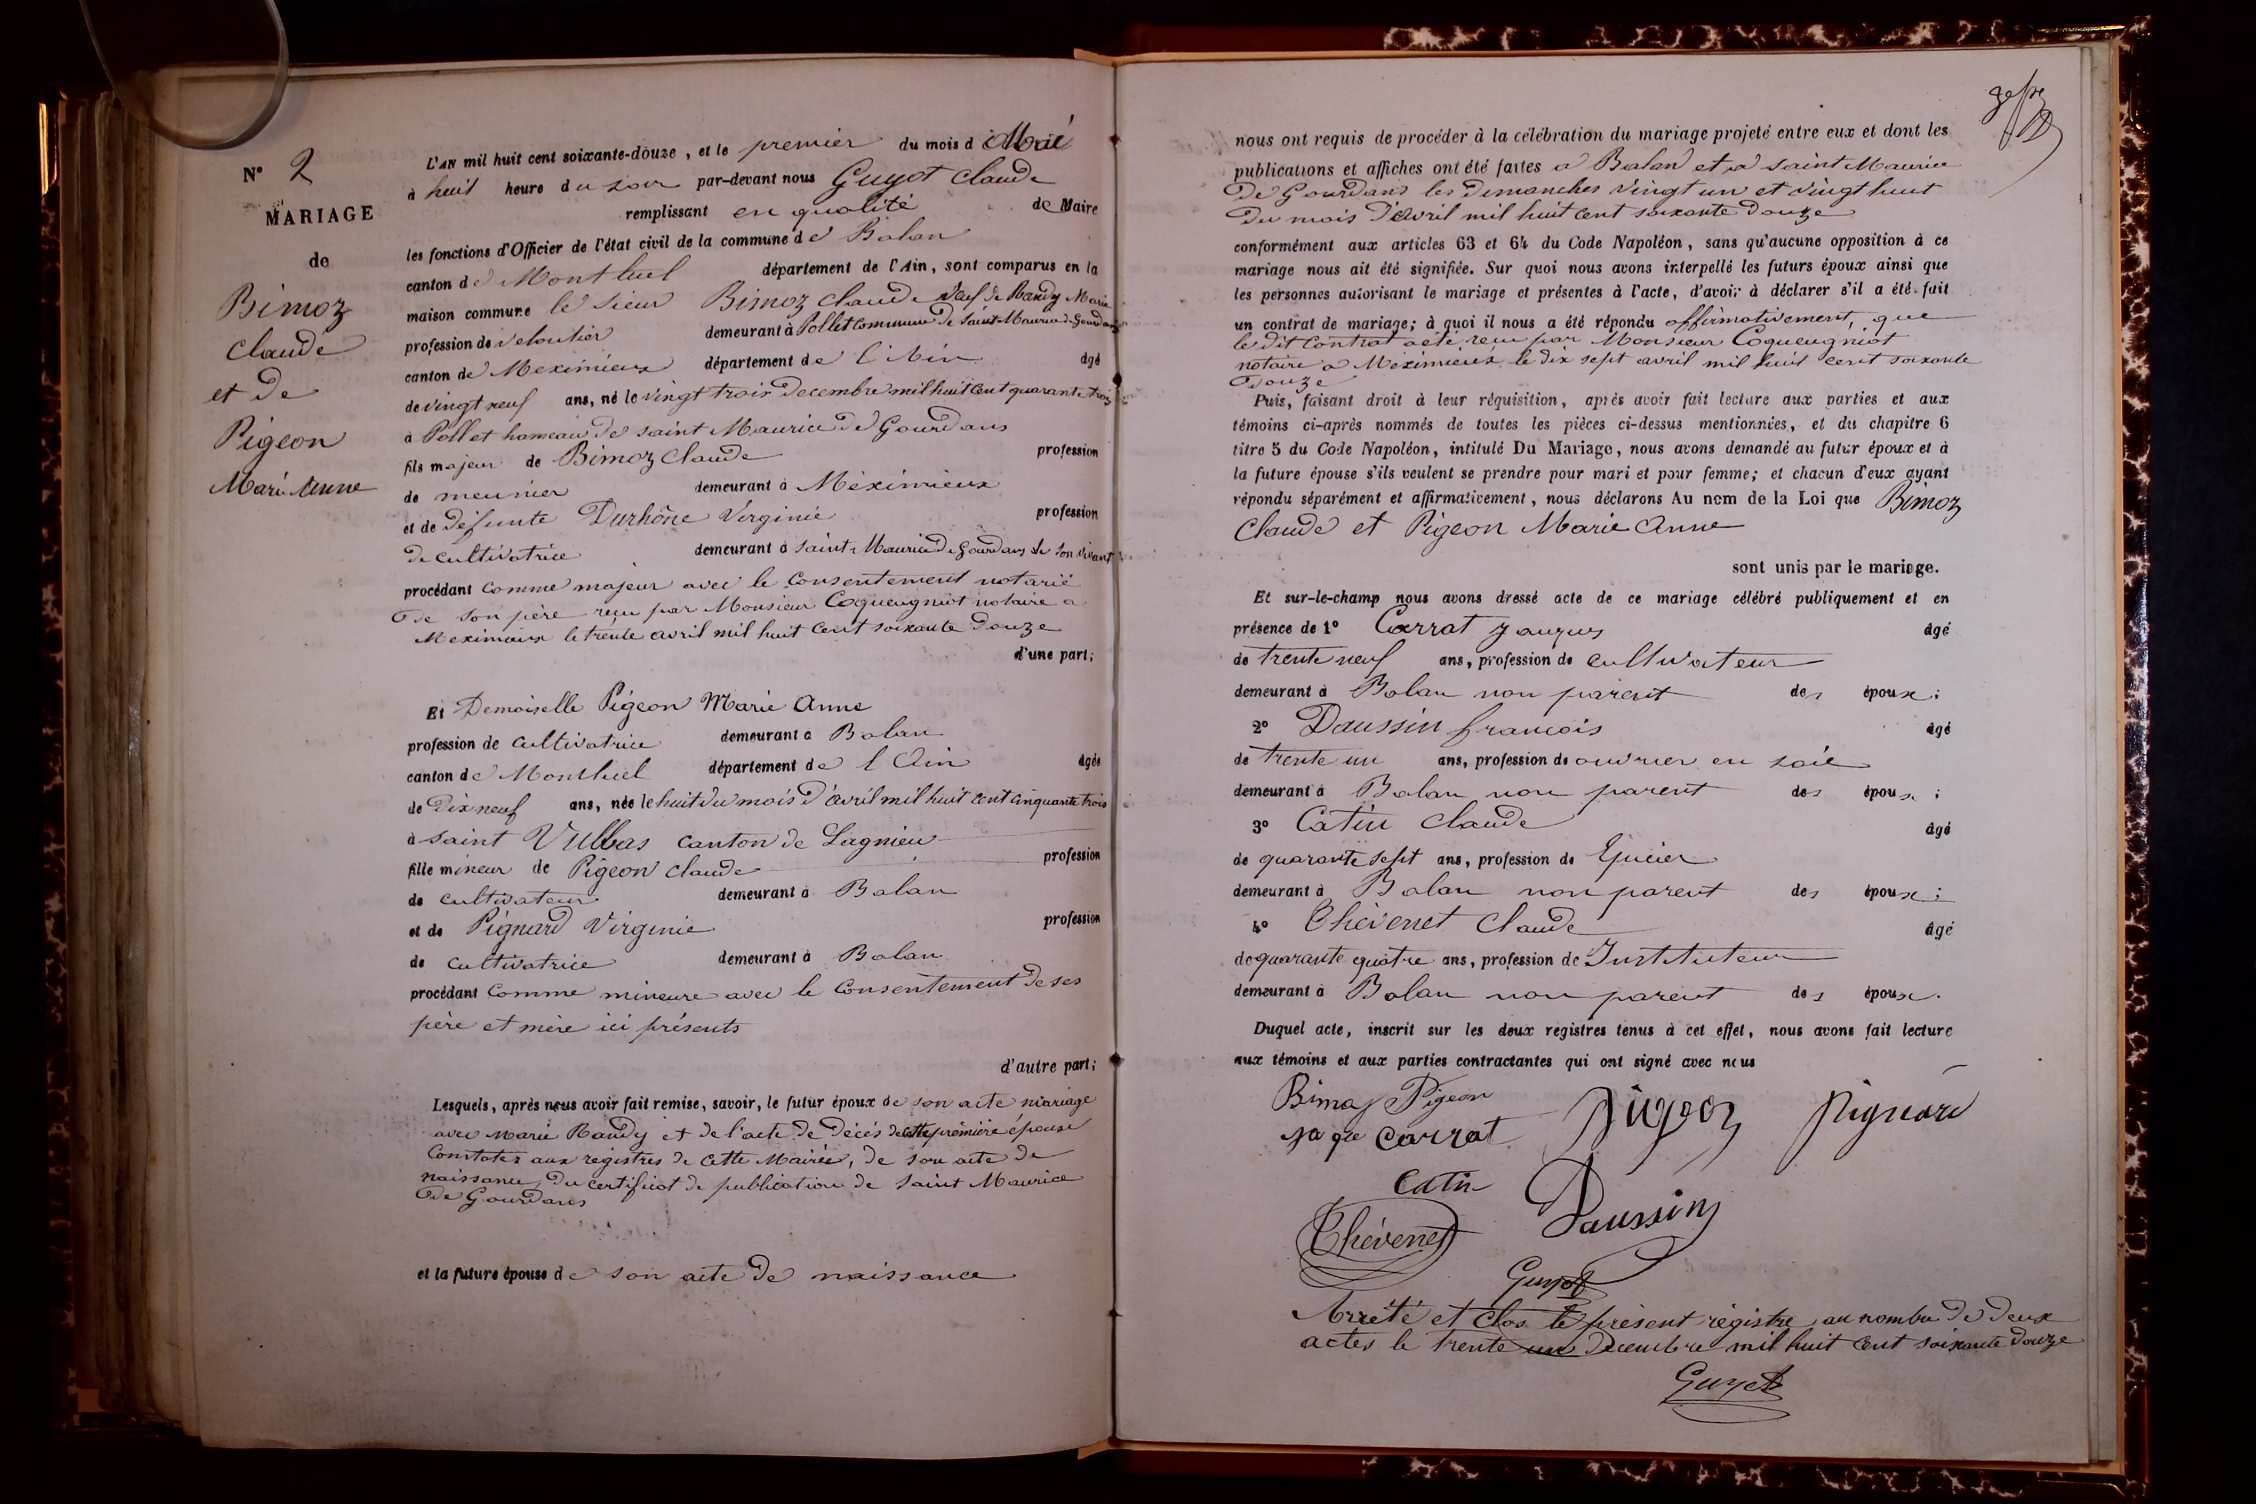 N° 2
MARIAGE
de
Bimoz
Claude
et de
Pigeon
Marie Anne
L'AN mil huit cent soixante-douze, et le premier du mois de Mai
à huit heure du soir par-devant nous Guyot Claude
remplissant en qualité de Maire
les fonctions d'Officier de l'état civil de la commune de Balan
canton de Montluel département de l'Ain, sont comparus en la
maison commune le sieur Bimoz Claude veuf de Randy Marie
profession de veloutier demeurant à Pollet commune de Saint-Maurice de Gourdans
canton de Meximieux département de l'Ain âgé
de vingt neuf ans, né le vingt trois decembre mil huit cent quarante trois
à Pollet hameau de saint Maurice de Gourdans
fils majeur de Bimoz Claude profession
de meunier demeurant à Méximieux
et de défunte Durhône Virginie profession
de cultivatrice demeurant à saint-Maurice de Gourdans de son vivant
procédant comme majeur avec le consentement notarié
de son père reçu par Monsieur Coqueugniot notaire a
Meximieux le trente avril mil huit cent soixante douze
d'une part;
Et Demoiselle Pigeon Marie Anne
profession de cultivatrice demeurant à Balan
canton de Montluel département de l'Ain âgée
de dix neuf ans, née le huit du mois d'avril mil huit cent cinquante trois
à saint Vulbas canton de Lagnieu
fille mineur de Pigeon Claude profession
de cultivateur demeurant à Balan
et de Pignard Virginie profession
de cultivatrice demeurant à Balan
procédant comme mineure avec le consentement de ses
père et mère ici présents
d'autre part;
Lesquels, après nous avoir fait remise, savoir, le futur époux de son acte mariage
avec Marie Randy et de l'acte de décés de cette première épouse
constatés aux registres de cette Mairie, de son acte de
naissance, du certificat de publication de saint Maurice
de Gourdans
et la future épouse de son acte de naissance
nous ont requis de procéder à la célébration du mariage projeté entre eux et dont les
publications et affiches ont été faites a Balan et a saint Maurice
de Gourdans les dimanches vingt un et vingt huit
du mois d'avril mil huit cent soixante douze
conformément aux articles 63 et 64 du Code Napoléon, sans qu'aucune opposition à ce
mariage nous ait été signifiée. Sur quoi nous avons interpellé les futurs époux ainsi que
les personnes autorisant le mariage et présentes à l'acte, d'avoir à déclarer s'il a été fait
un contrat de mariage; à quoi il nous a été répondu affirmativement, que
le dit contrat a été reçu par Monsieur Coqueugniot
notaire a Méximieux le dix sept avril mil huit cent soixante
douze
Puis, faisant droit à leur réquisition, après avoir fait lecture aux parties et aux
témoins ci-après nommés de toutes les pièces ci-dessus mentionnées, et du chapitre 6
titre 5 du Code Napoléon, intitulé Du Mariage, nous avons demandé au futur époux et à
la future épouse s'ils veulent se prendre pour mari et pour femme; et chacun d'eux ayant
répondu séparément et affirmativement, nous déclarons Au nom de la Loi que Bimoz
Claude et Pigeon Marie Anne
sont unis par le mariage.
Et sur-le-champ nous avons dressé acte de ce mariage célébré publiquement et en
présence de 1° Carrat Jacques âgé
de trente neuf ans, profession de cultivateur
demeurant à Balan non parent des époux;
2° Daussin françois âgé
de trente un ans, profession de ouvrier en soie
demeurant à Balan non parent des époux;
3° Catin Claude âgé
de quarante sept ans, profession de Epicier
demeurant à Balan non parent des époux;
4° Thévenet Claude âgé
de quarante quatre ans, profession de Instituteur
demeurant à Balan non parent des époux.
Duquel acte, inscrit sur les deux registres tenus à cet effet, nous avons fait lecture
aux témoins et aux parties contractantes qui ont signé avec nous
Bimoz Pigeon
Pigeon Pignard
Jaque Carrat
Catin
Daussin
Thévenet
Guyot
Arrêté et clos le présent régistre au nombre de deux
actes le trente un Decembre mil huit cent soixante douze
Guyot